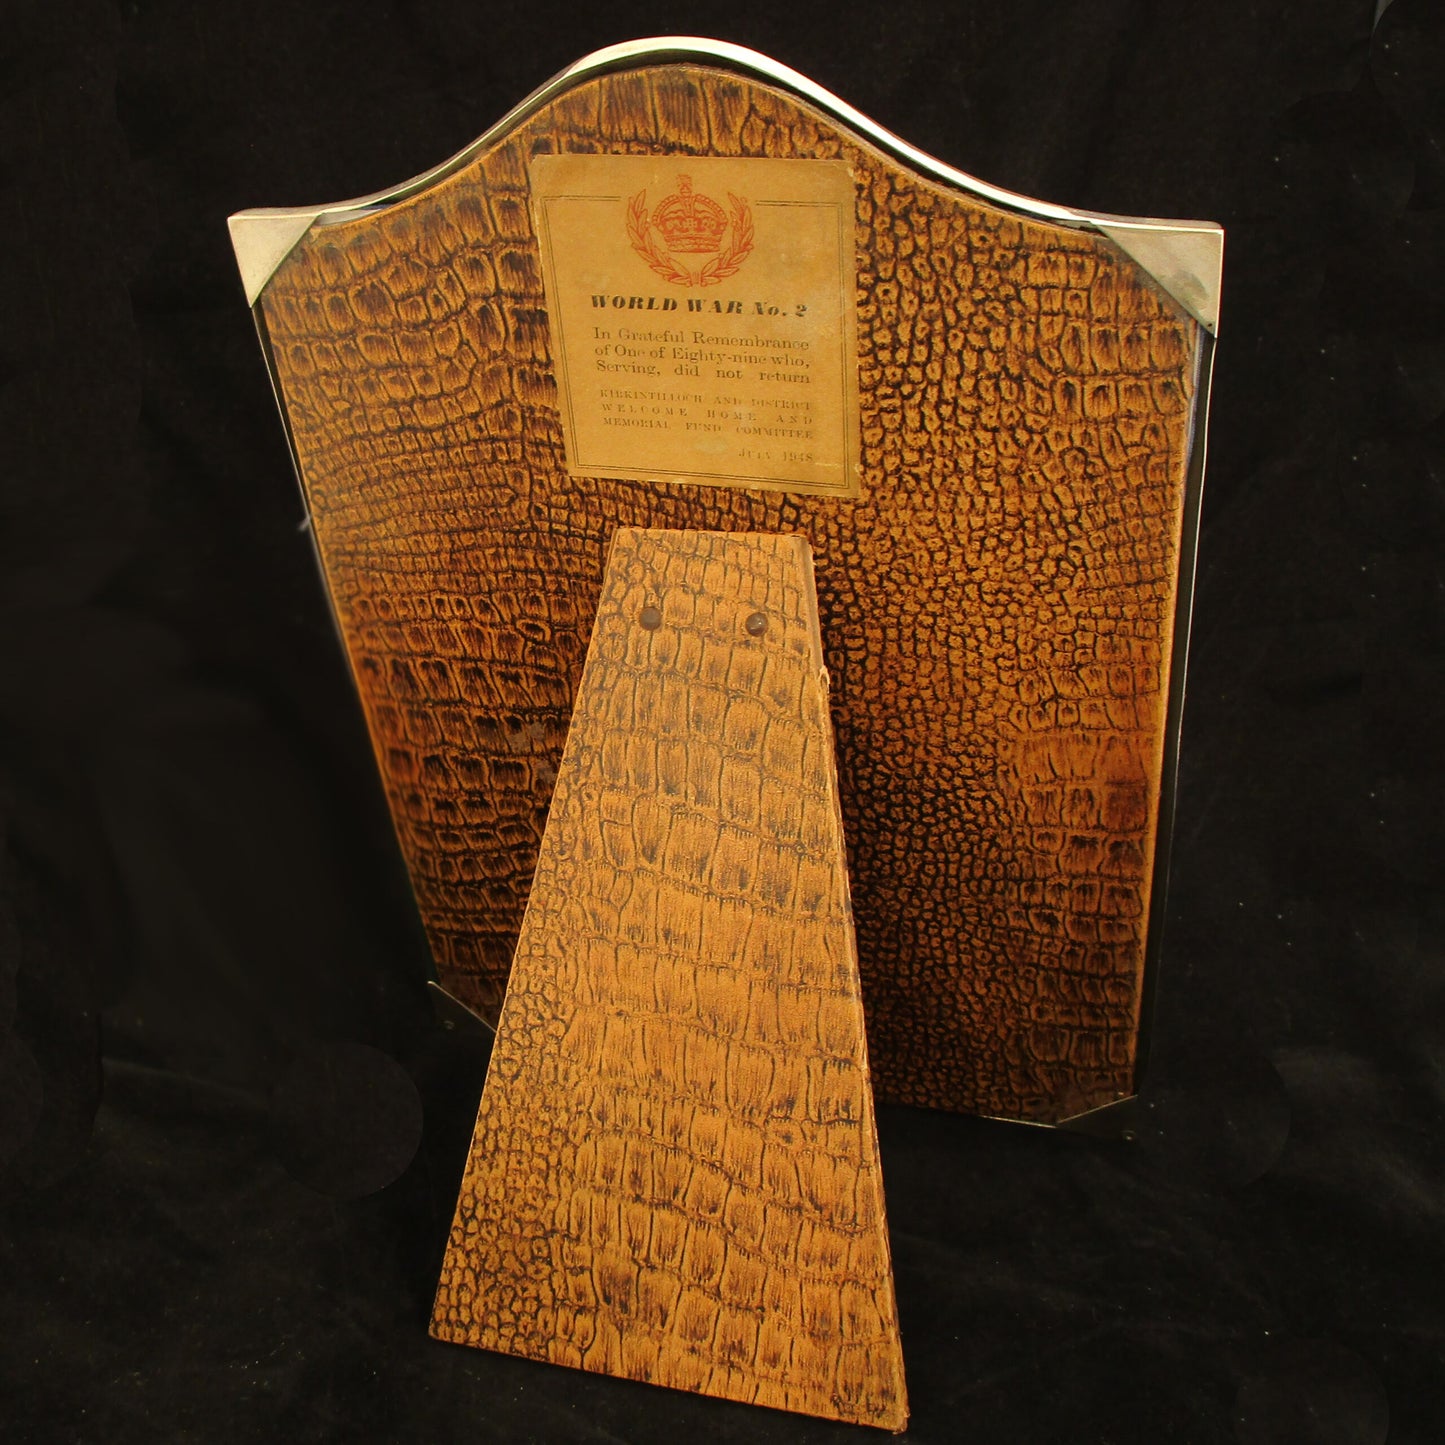 WORLD WAR No. 2
In Grateful Remembrance
of One of Eighty-nine who,
Serving, did not return
KIRKINTILLOCH AND DISTRICT
WELCOME HOME AND
MEMORIAL FUND COMMITTEE
JULY 1948